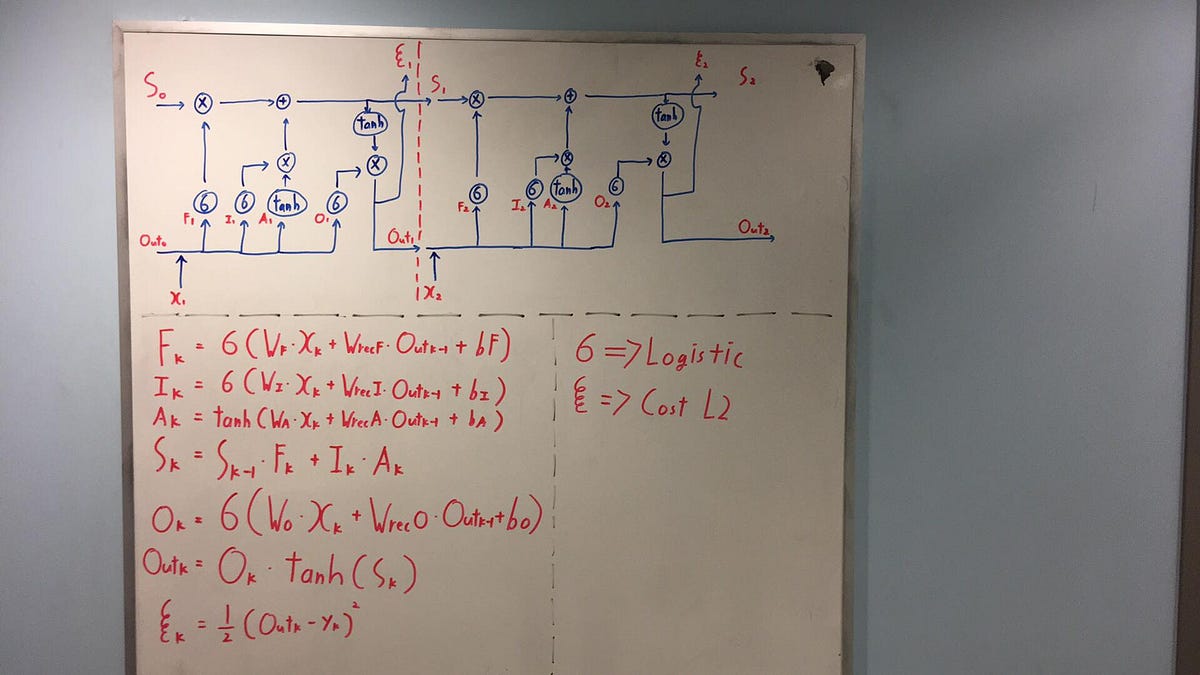 S₀ × + ξ₁ S₁ × + ξ₂ S₂
tanh tanh
× × × ×
6 6 tanh 6 6 6 tanh 6
F₁ I₁ A₁ O₁ F₂ I₂ A₂ O₂
Out₀ Out₁ Out₂
X₁ X₂
Fₖ = 6(WF·Xₖ + WrecF·Outₖ₋₁ + bF)
Iₖ = 6(WI·Xₖ + WrecI·Outₖ₋₁ + bI)
Aₖ = tanh(WA·Xₖ + WrecA·Outₖ₋₁ + bA)
Sₖ = Sₖ₋₁·Fₖ + Iₖ·Aₖ
Oₖ = 6(WO·Xₖ + WrecO·Outₖ₋₁+bO)
Outₖ = Oₖ · tanh(Sₖ)
ξₖ = 1/2 (Outₖ - Yₖ)²
6 => Logistic
ξ => Cost L2